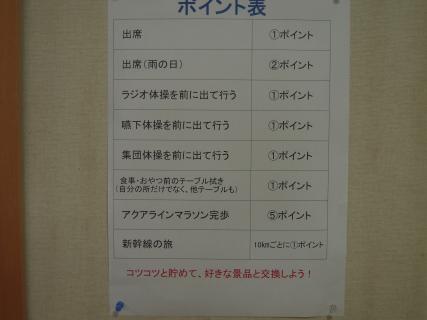 ポイント表
出席 ①ポイント
出席(雨の日) ②ポイント
ラジオ体操を前に出て行う ①ポイント
嚥下体操を前に出て行う ①ポイント
集団体操を前に出て行う ①ポイント
食事・おやつ前のテーブル拭き
(自分の所だけでなく、他テーブルも) ①ポイント
アクアラインマラソン完歩 ⑤ポイント
新幹線の旅 10kmごとに①ポイント
コツコツと貯めて、好きな景品と交換しよう!